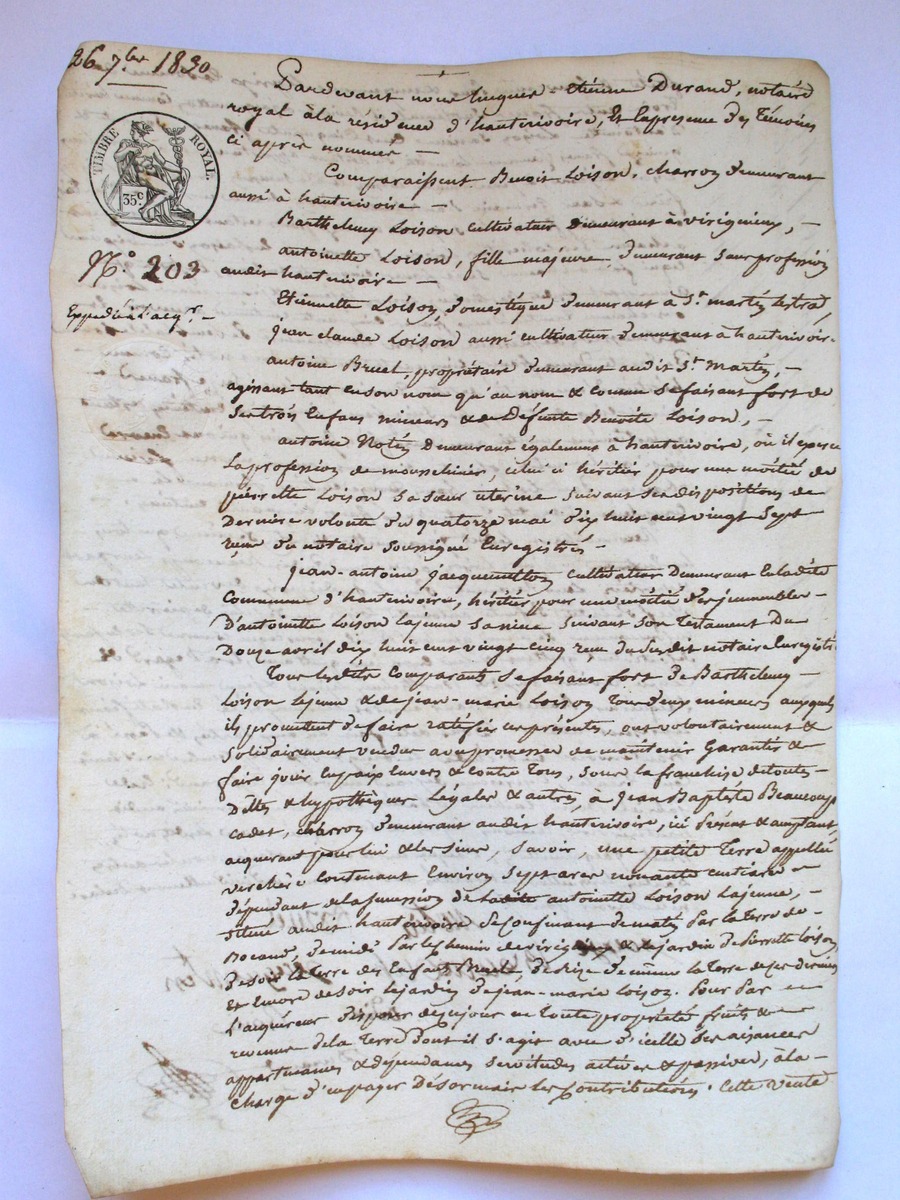 26 7bre 1830
TIMBRE ROYAL.
35c
N.° 203
Expédié à l'acqr. —
Pardevant nous hugues-etiénne Durand, notaire
royal à la résidence d'hauterivoire, Et la présence des Témoins
ci après nommés —
Comparaissent Benoit Loison, charron demeurant
aussi à hauterivoire —
Barthélemy Loison cultivateur demeurant à virigneux, —
antoinette Loison, fille majeure demeurant sans profession
audit hauterivoire —
Etiennette Loison domestique demeurant à St. martin
jean claude Loison aussi cultivateur demeurant à hauterivoire.
antoine Bruel, propriétaire demeurant audit St. Martin, —
agissant tant en son nom qu'au nom & comme se faisant fort de
ses trois Enfans mineurs & de défunte Benoite Loison, —
antoine Notin demeurant également à hauterivoire, où il exerce
la profession de mousselinier, celui ci héritier pour une moitié de
pierrette Loison sa sœur utérine suivant ses dispositions de
dernière volonté du quatorze mai dix huit cent vingt sept
reçu du notaire soussigné Enregistrés —
jean-antoine jacquemetton cultivateur demeurant en la dite
Commune d'hauterivoire, héritier pour une moitié des immeubles —
D'antoinette Loison la jeune sa nièce suivant son Testament du
Douze avril dix huit cent vingt cinq reçu du susdit notaire Enregistré
Tous lesdits Comparants se faisant fort de Barthélemy —
Loison le jeune & de jean-marie Loison Tous deux mineurs auxquels
ils promettent de faire ratifier ces présentes, ont volontairement &
solidairement vendu avec promesse de maintenir Garantir &
faire jouir En paix Envers & contre Tous, sous la franchise de toutes —
Dettes & hypothèques Légales & autres, à Jean Baptiste Beaucoup
cadet, charron demeurant audit hauterivoire, ici présent & acceptant,
acquerant pour lui & les siens, savoir, une petite Terre appellée
verchère contenant Environ Sept ares nonante centiares —
dépendant de la succession de ladite antoinette Loison la jeune, —
située audit hauterivoire se Confinant de matin par la terre de —
Bocand, de midi par le chemin de virigneux & le jardin de pierrette Loison
de soir la terre des Enfans Bruel, de bize de même la terre de ces derniers
Et Encore de soir le jardin de jean-marie Loison. Pour par —
l'acquéreur disposer dès ce jour en Toute propriété fruits &
revenus de la Terre dont il s'agit avec d'icelle ses aisances
appartenances & dépendances servitudes actives & passives, à la —
charge d'en payer désormais les Contributions. Cette vente